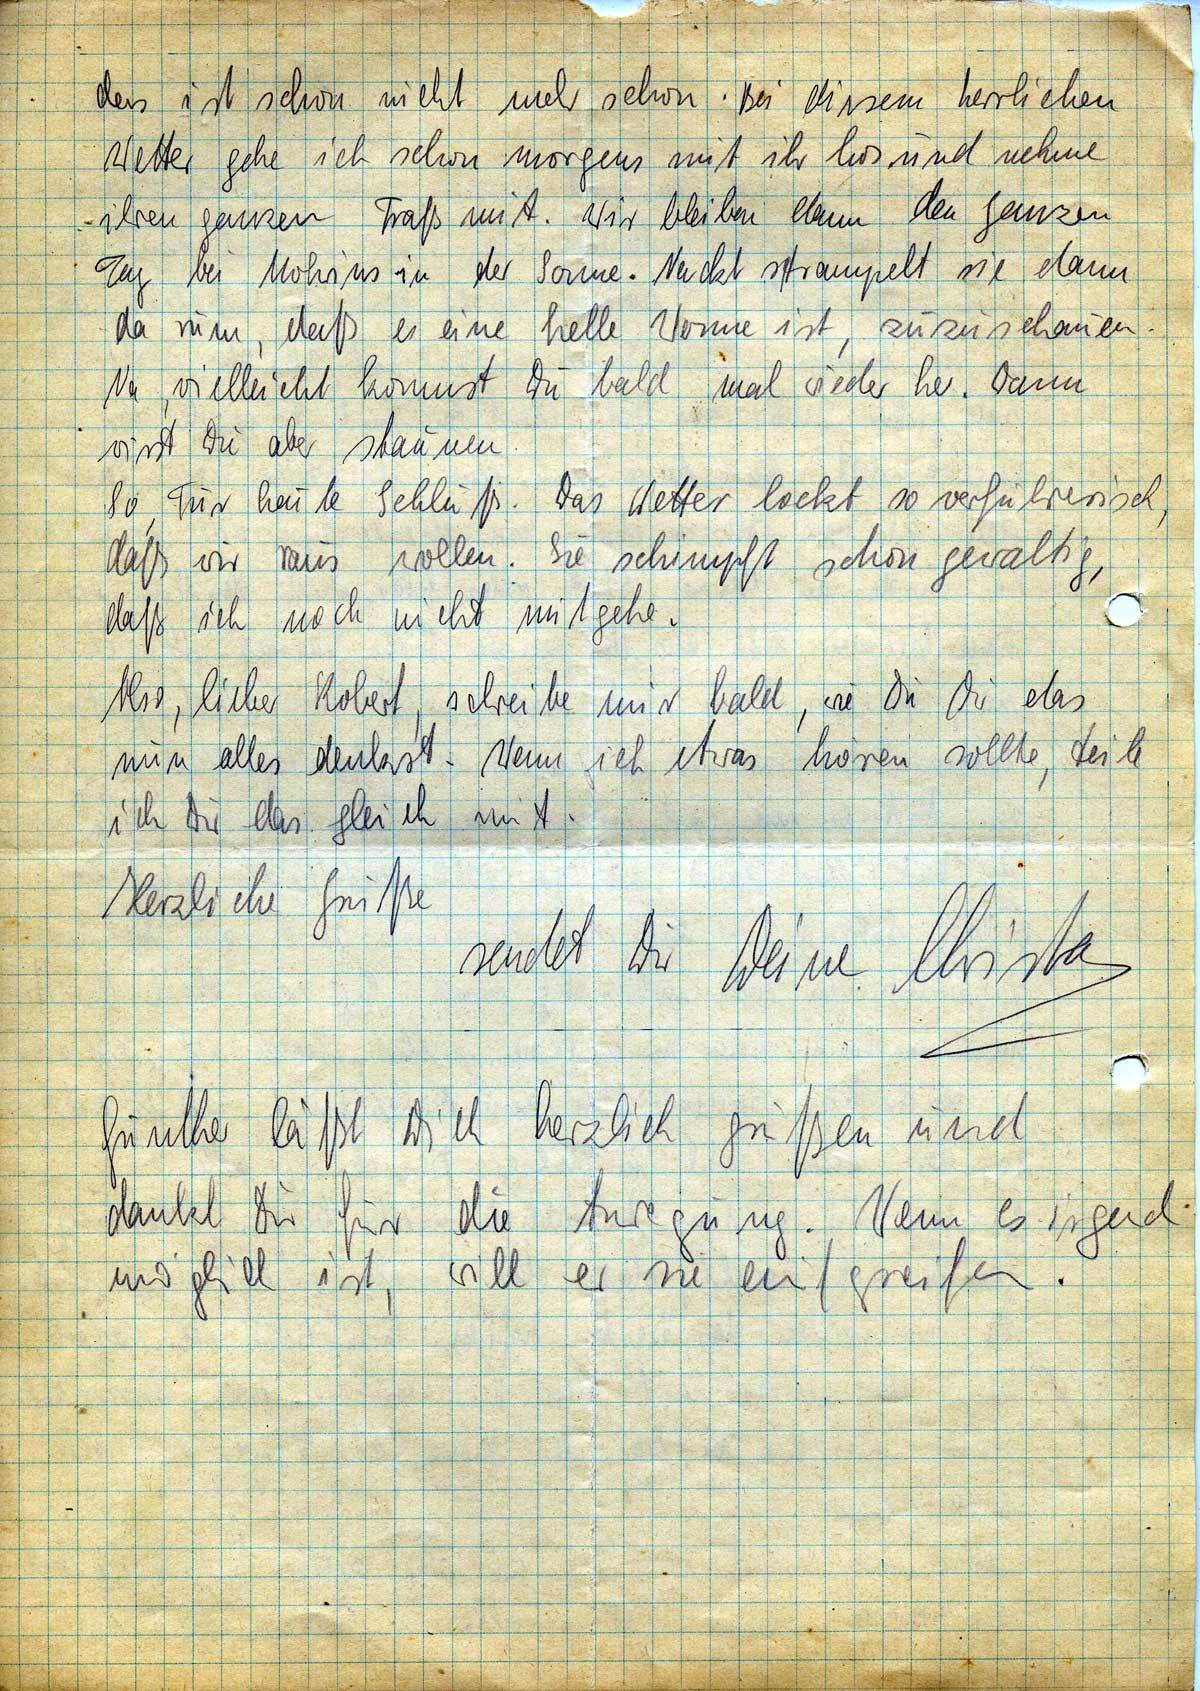 das ist schon nicht mehr schön. Bei diesem herrlichen
Wetter gehe ich schon morgens mit ihr los und nehme
ihren ganzen Fraß mit. Wir bleiben dann den ganzen
Tag bei in der Sonne. Nackt strampelt sie dann
da rum, daß es eine helle Wonne ist, zuzuschauen.
Na, vielleicht kommst Du bald mal wieder her. Dann
wirst Du aber staunen.
So, für heute Schluß. Das Wetter lockt so verführerisch,
daß wir raus wollen. Sie schimpft schon gewaltig,
daß ich noch nicht mitgehe.
Also, lieber Robert, schreibe mir bald, wie Du Dir das
nun alles denkst. Wenn ich etwas hören sollte, teile
ich Dir das gleich mit.
Herzliche Grüße
sendet Dir Deine Christa
Günther läßt Dich herzlich grüßen und
dankt Dir für die Anregung. Wenn es irgend
möglich ist, will er sie aufgreifen.